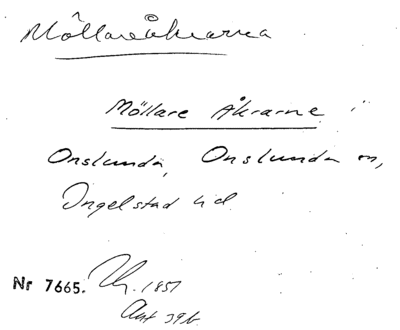 Möllareåkrarna
Möllare Åkrarne i
Onslunda, Onslunda sn,
Ingelstad hd
Nr 7665. 1851
Akt 39b